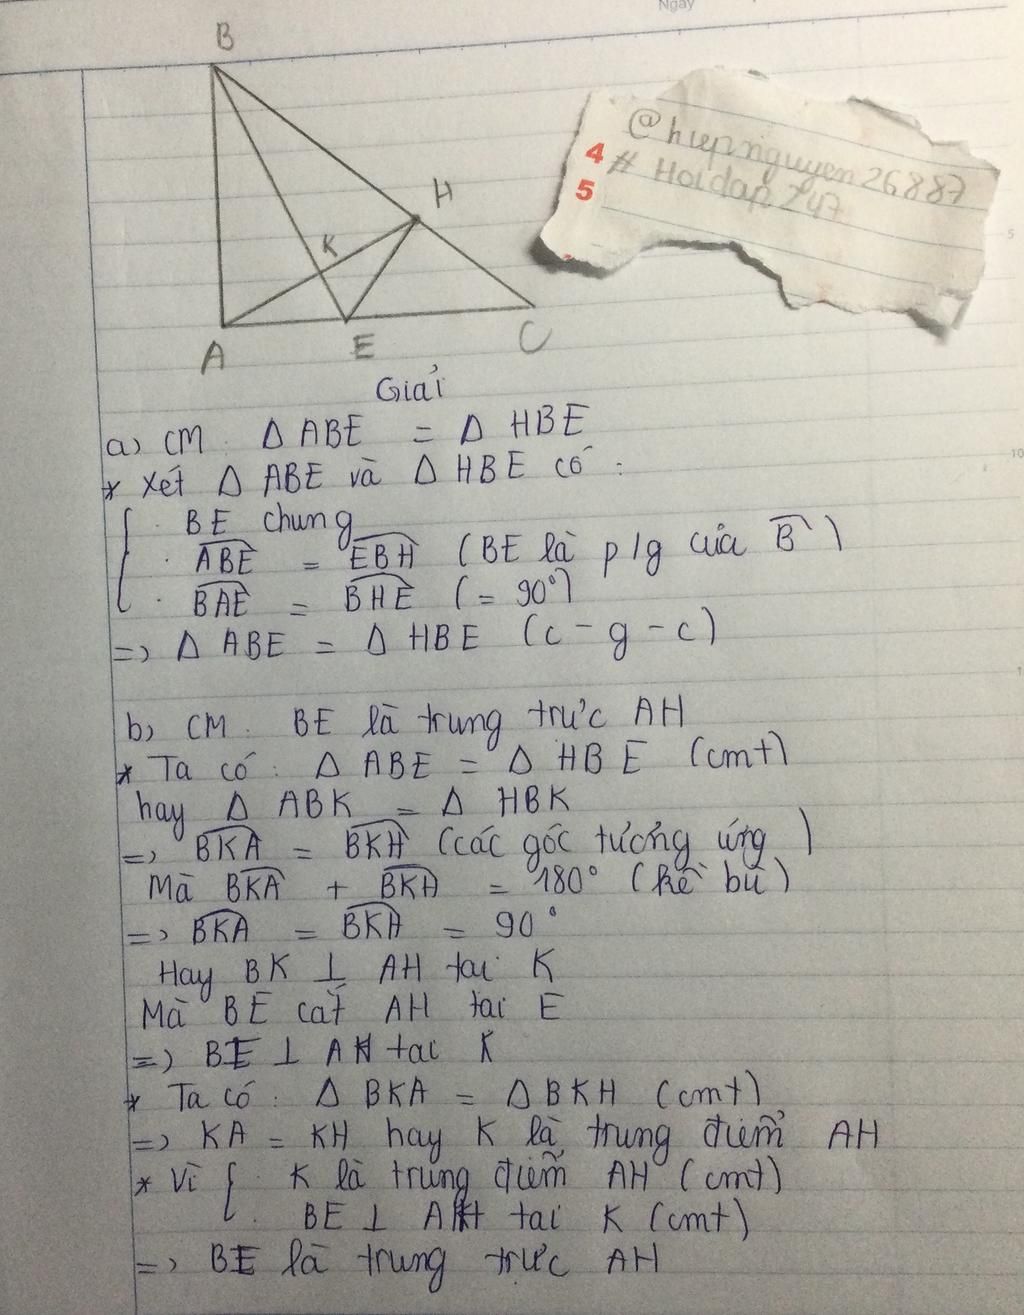 Ngày
B
H
K
A
E
C
@hiepnguyen26887
4
# Hoidap247
5
5
10
Giải
a) CM. Δ ABE = Δ HBE
* Xét Δ ABE và Δ HBE có :
· BE chung
· ABE = EBH (BE là p/g của B)
· BAE = BHE (= 90°)
=> Δ ABE = Δ HBE (c - g - c)
b) CM. BE là trung trực AH
* Ta có : Δ ABE = Δ HBE (cmt)
hay Δ ABK = Δ HBK
=> BKA = BKH (các góc tương ứng)
Mà BKA + BKH = 180° (kề bù)
=> BKA = BKH = 90°
Hay BK ⊥ AH tai K
Mà BE cắt AH tai E
=> BE ⊥ AH tai K
* Ta có : Δ BKA = Δ BKH (cmt)
=> KA = KH hay K là trung điểm AH
* Vì { · K là trung điểm AH (cmt)
· BE ⊥ AH tai K (cmt)
=> BE là trung trực AH